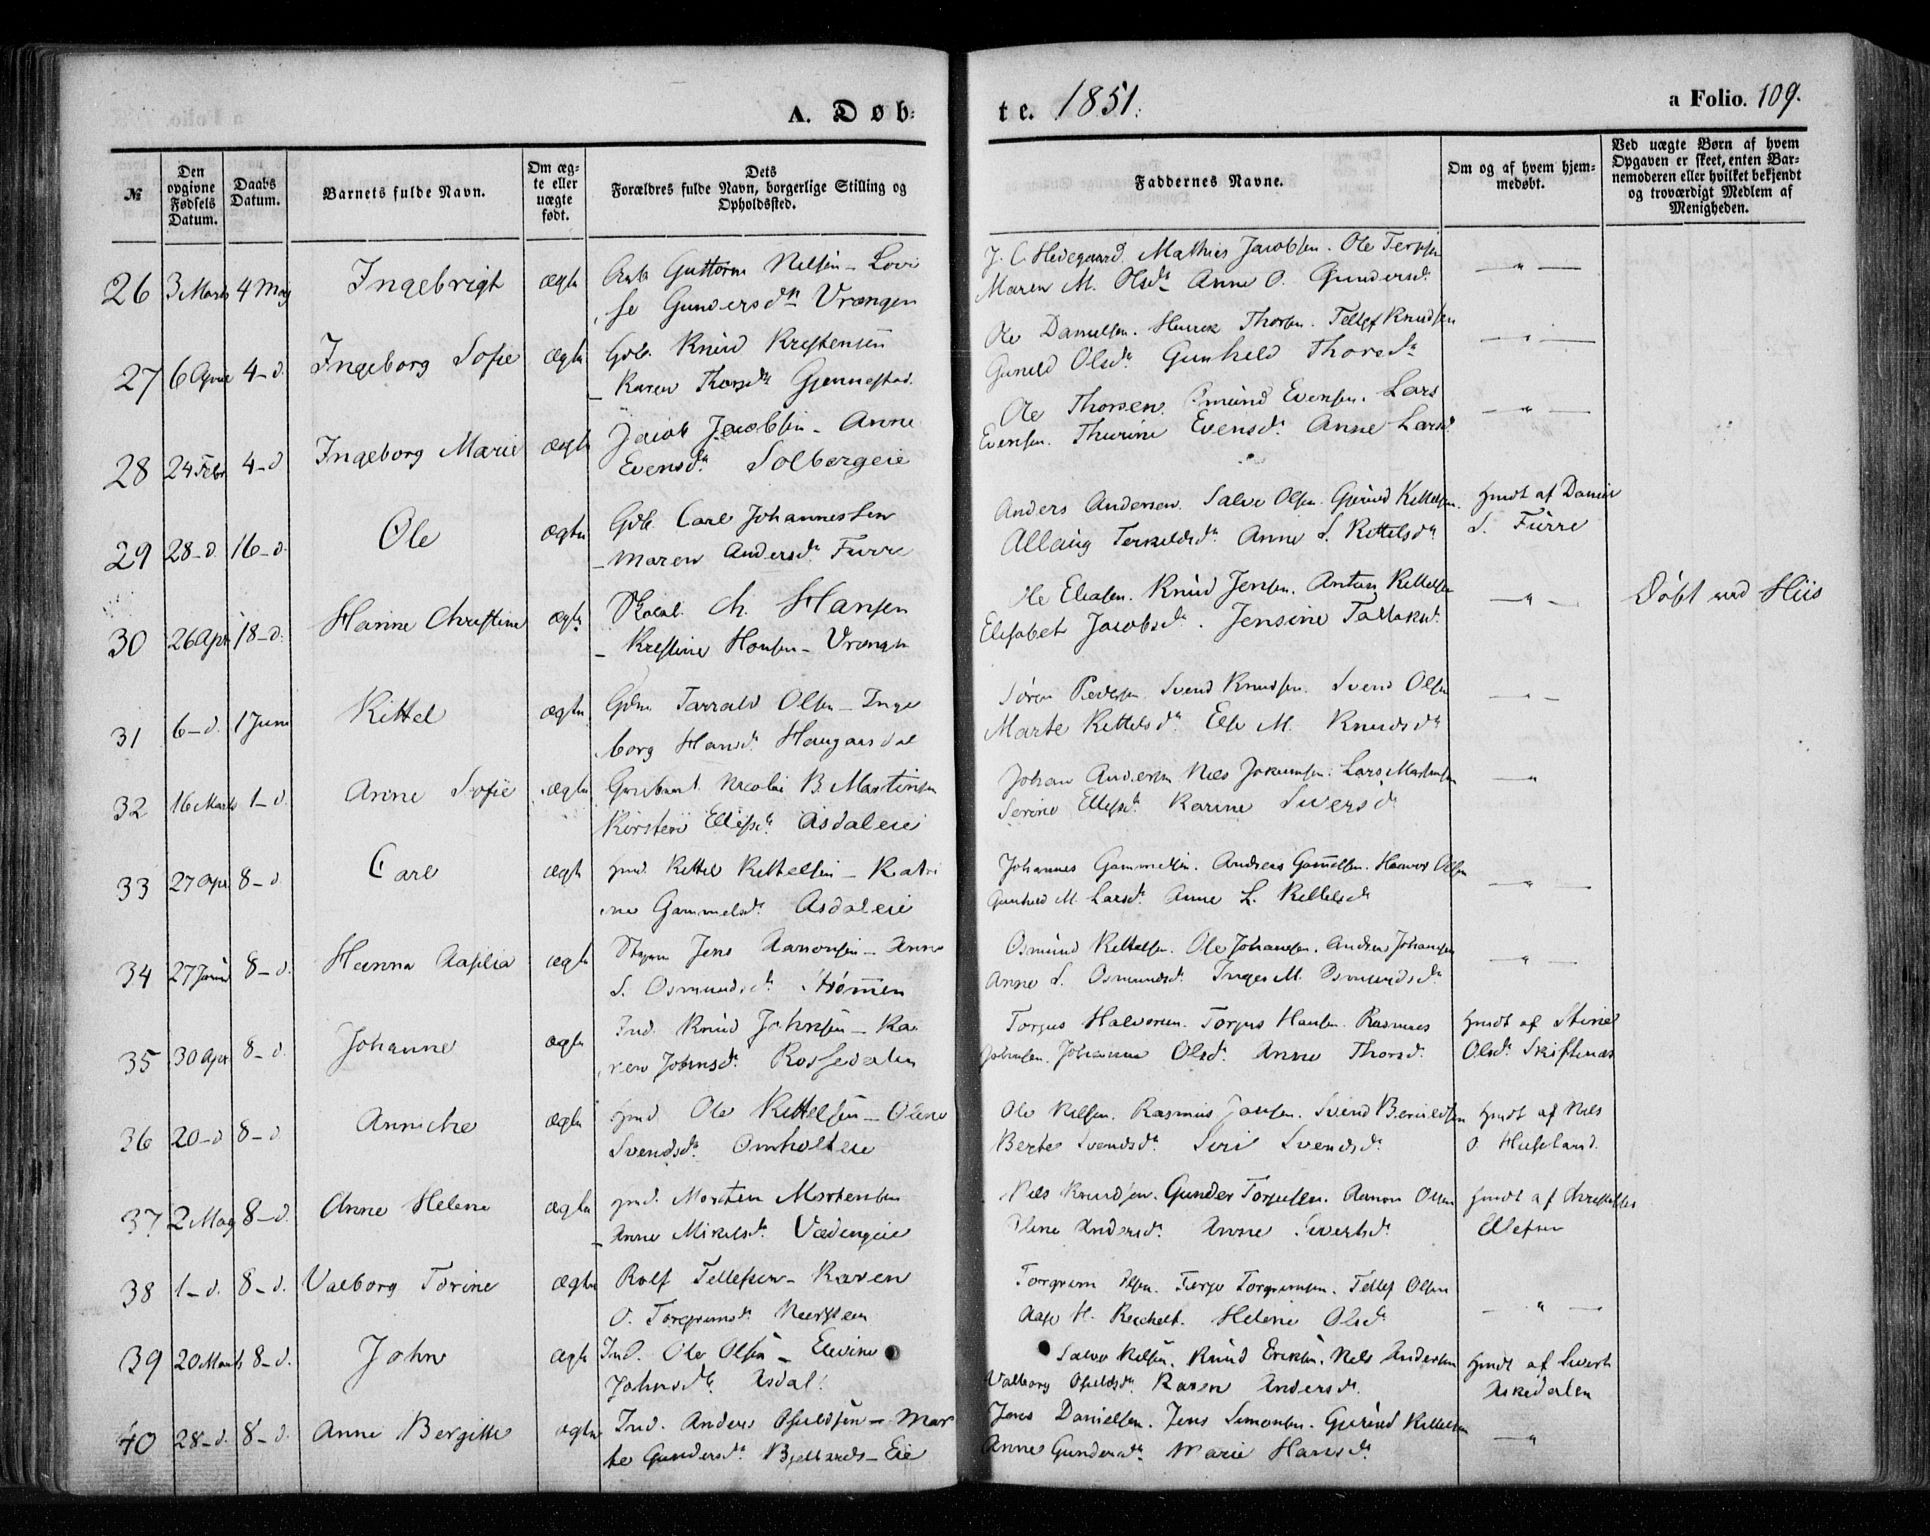 A. Døb:
te. 1851.
a Folio. 109.
№
Den opgivne Fødsels Datum.
Daabs Datum.
Barnets fulde Navn.
Om ægte eller uægte født.
Dets Forældres fulde Navn, borgerlige Stilling og Opholdssted.
Faddernes Navne.
Om og af hvem hjemmedøbt.
Ved uægte Børn af hvem Opgaven er skeet, enten Barnemoderen eller hvilket bekjendt og troværdigt Medlem af Menigheden.
26 3 Marts 4 May Ingebrigt ægte Guttorm Nilsen - Lovi
se Gundersdr Vrangen
J. C. Hedegaard. Mathias Jacobsen. Ole Terjesen
Maren M. Olsdr Anne O. Gundersdr
27 6 April 4-d. Ingeborg Sofie ægte Gdb. Knud Kristensen
- Karen Thorsdr Gjennestad.
Ole Danielsen. Thorsen. Tellef Knudsen
Gunild Olsdr Gunhild Thorsdr
28 24 Febr 4-d Ingeborg Marie ægte Jacob Jacobsen - Anne
Evensdr Solbergeie
Ole Thorsen. Osmund Evensen. Lars
Evensen. Thurine Evensdr. Anne Larsd.
29 28-d. 16-d. Ole ægte Gdb. Carl Johannessen
- Maren Andersdr Furre
Anders Andersen. Salve Olsen. Gjeruld Kittelsen.
Allaug Terkeldsdr. Anne S. Kittelsdr
Hmdt af Daniel
S. Furre
30 26 Apr 18-d. Hanne Christine ægte Ch. Hansen
- Kristine Hansen - Vrangen
Ole Eliasen. Knud Jensen. Anton Kittelsen
Elisabet Jacobsdr. Jensine Tallaksd.
Døbt ved Hiis
31 6-d. 1 Juni Kittel ægte Gdm Tarrald Olsen - Inge
borg Hansdr Haugaasdal
Søren Pedersen. Svend Knudsen. Svend Olsen
Marte Kittelsdr Else M. Knudsdr
32 16 Marts 1-d. Anne Sofie ægte Nicolai B. Martinsen
Kirsten Ellefsdr. Asdaleie
Johan Andersen Nils Jokumsen. Lars Martinsen
Serine Ellefsdr. Karine Siversdr
33 27 Apr 8-d. Carl ægte Hmd. Kittel Kittelsen - Katri
ne Gammelsdr. Asdaleie
Johannes Gammelsen. Andreas Gamelsen. Haavor Olsen
Gunhild M. Larsdr. Anne L. Kittelsdr
34 27 8-d. Hanna Aasilia ægte Styrm Jens Aanonsen - Anne
S. Osmundsdr. Strømmen
Osmund Kittelsen. Ole Johansen. Andreas Johansen
Anne S. Osmundsdr. Inger M. Osmundsdr.
35 30 Apr 8-d. Johanne ægte Ind. Knud Johnsen - Ka
ren Johnsdr. Rossedalen
Torjus Halvorsen. Torjus Hansen. Rasmus
Johnsen. Johanne Olsdr. Anne Thorsdr.
Hmdt af Stine
Olsdr. Skiftenæs
36 20-d 8-d. Anniche ægte Hmd. Ole Kittelsen - Olene
Svendsdr. Omholteie
Ole Nilsen. Rasmus Jansen. Svend Berulsen
Berte Svendsdr. Siri Svendsdr.
Hmdt af Nils
O Huseland.
37 2 May 8-d. Anne Helene ægte Hmd. Morten Mortensen
- Anne Mikelsdr. Vædengeie
Nils Knudsen. Gunder Torjusen. Aanon Olsen
Oline Andersdr. Anne Sivertsdr.
Hmdt af
Ellefsen
38 1-d. 8-d. Valborg Torine ægte Rolf Tellefsen - Karen
O. Torgrimsdr. Neersteen
Torgrim Olsen. Terje Torgrimsen. Tellef Olsen
Aase H. Reichelt. Helene Olsdr
39 20 Marts 8-d. John ægte Ind. Ole Olsen - Elevine
Johnsdr. Asdal.
Salve Nilsen. Knud Eriksen. Nils Andersen
Valborg Osuldsdr. Karen Andersdr.
Hmdt af Sivert
Askedalen
40 28-d. 8-d. Anne Bergitte ægte Ind. Anders Osuldsen - Mar
te Gundersdr. Bjellands-Eie
Jens Danielsen. Jens Simonsen. Gjeruld Kittelsen
Anne Gundersdr. Marie Hansdr.